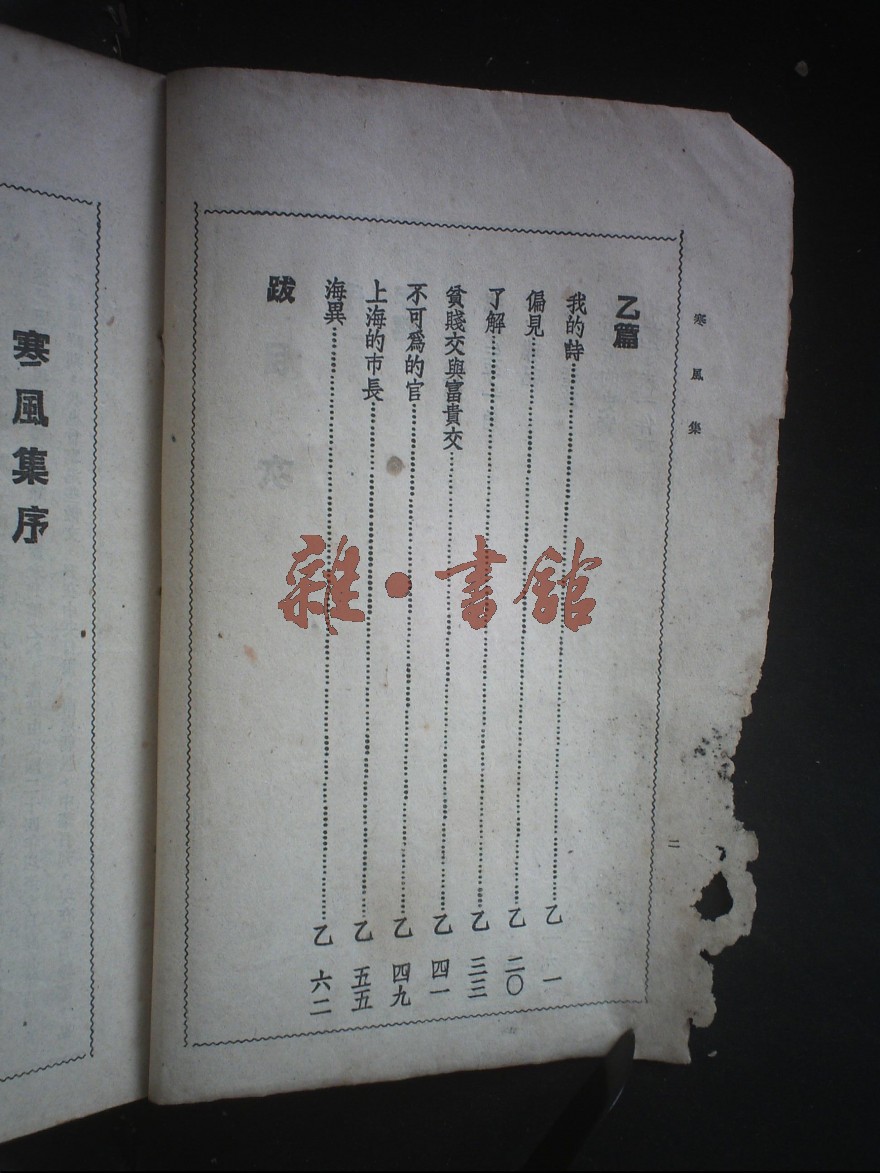 寒風集
二
乙篇
我的詩……乙 一
偏見……乙 二〇
了解……乙 三三
貧賤交與富貴交……乙 四一
不可爲的官……乙 四九
上海的市長……乙 五五
海異……乙 六二
跋
寒風集序
雜·書館